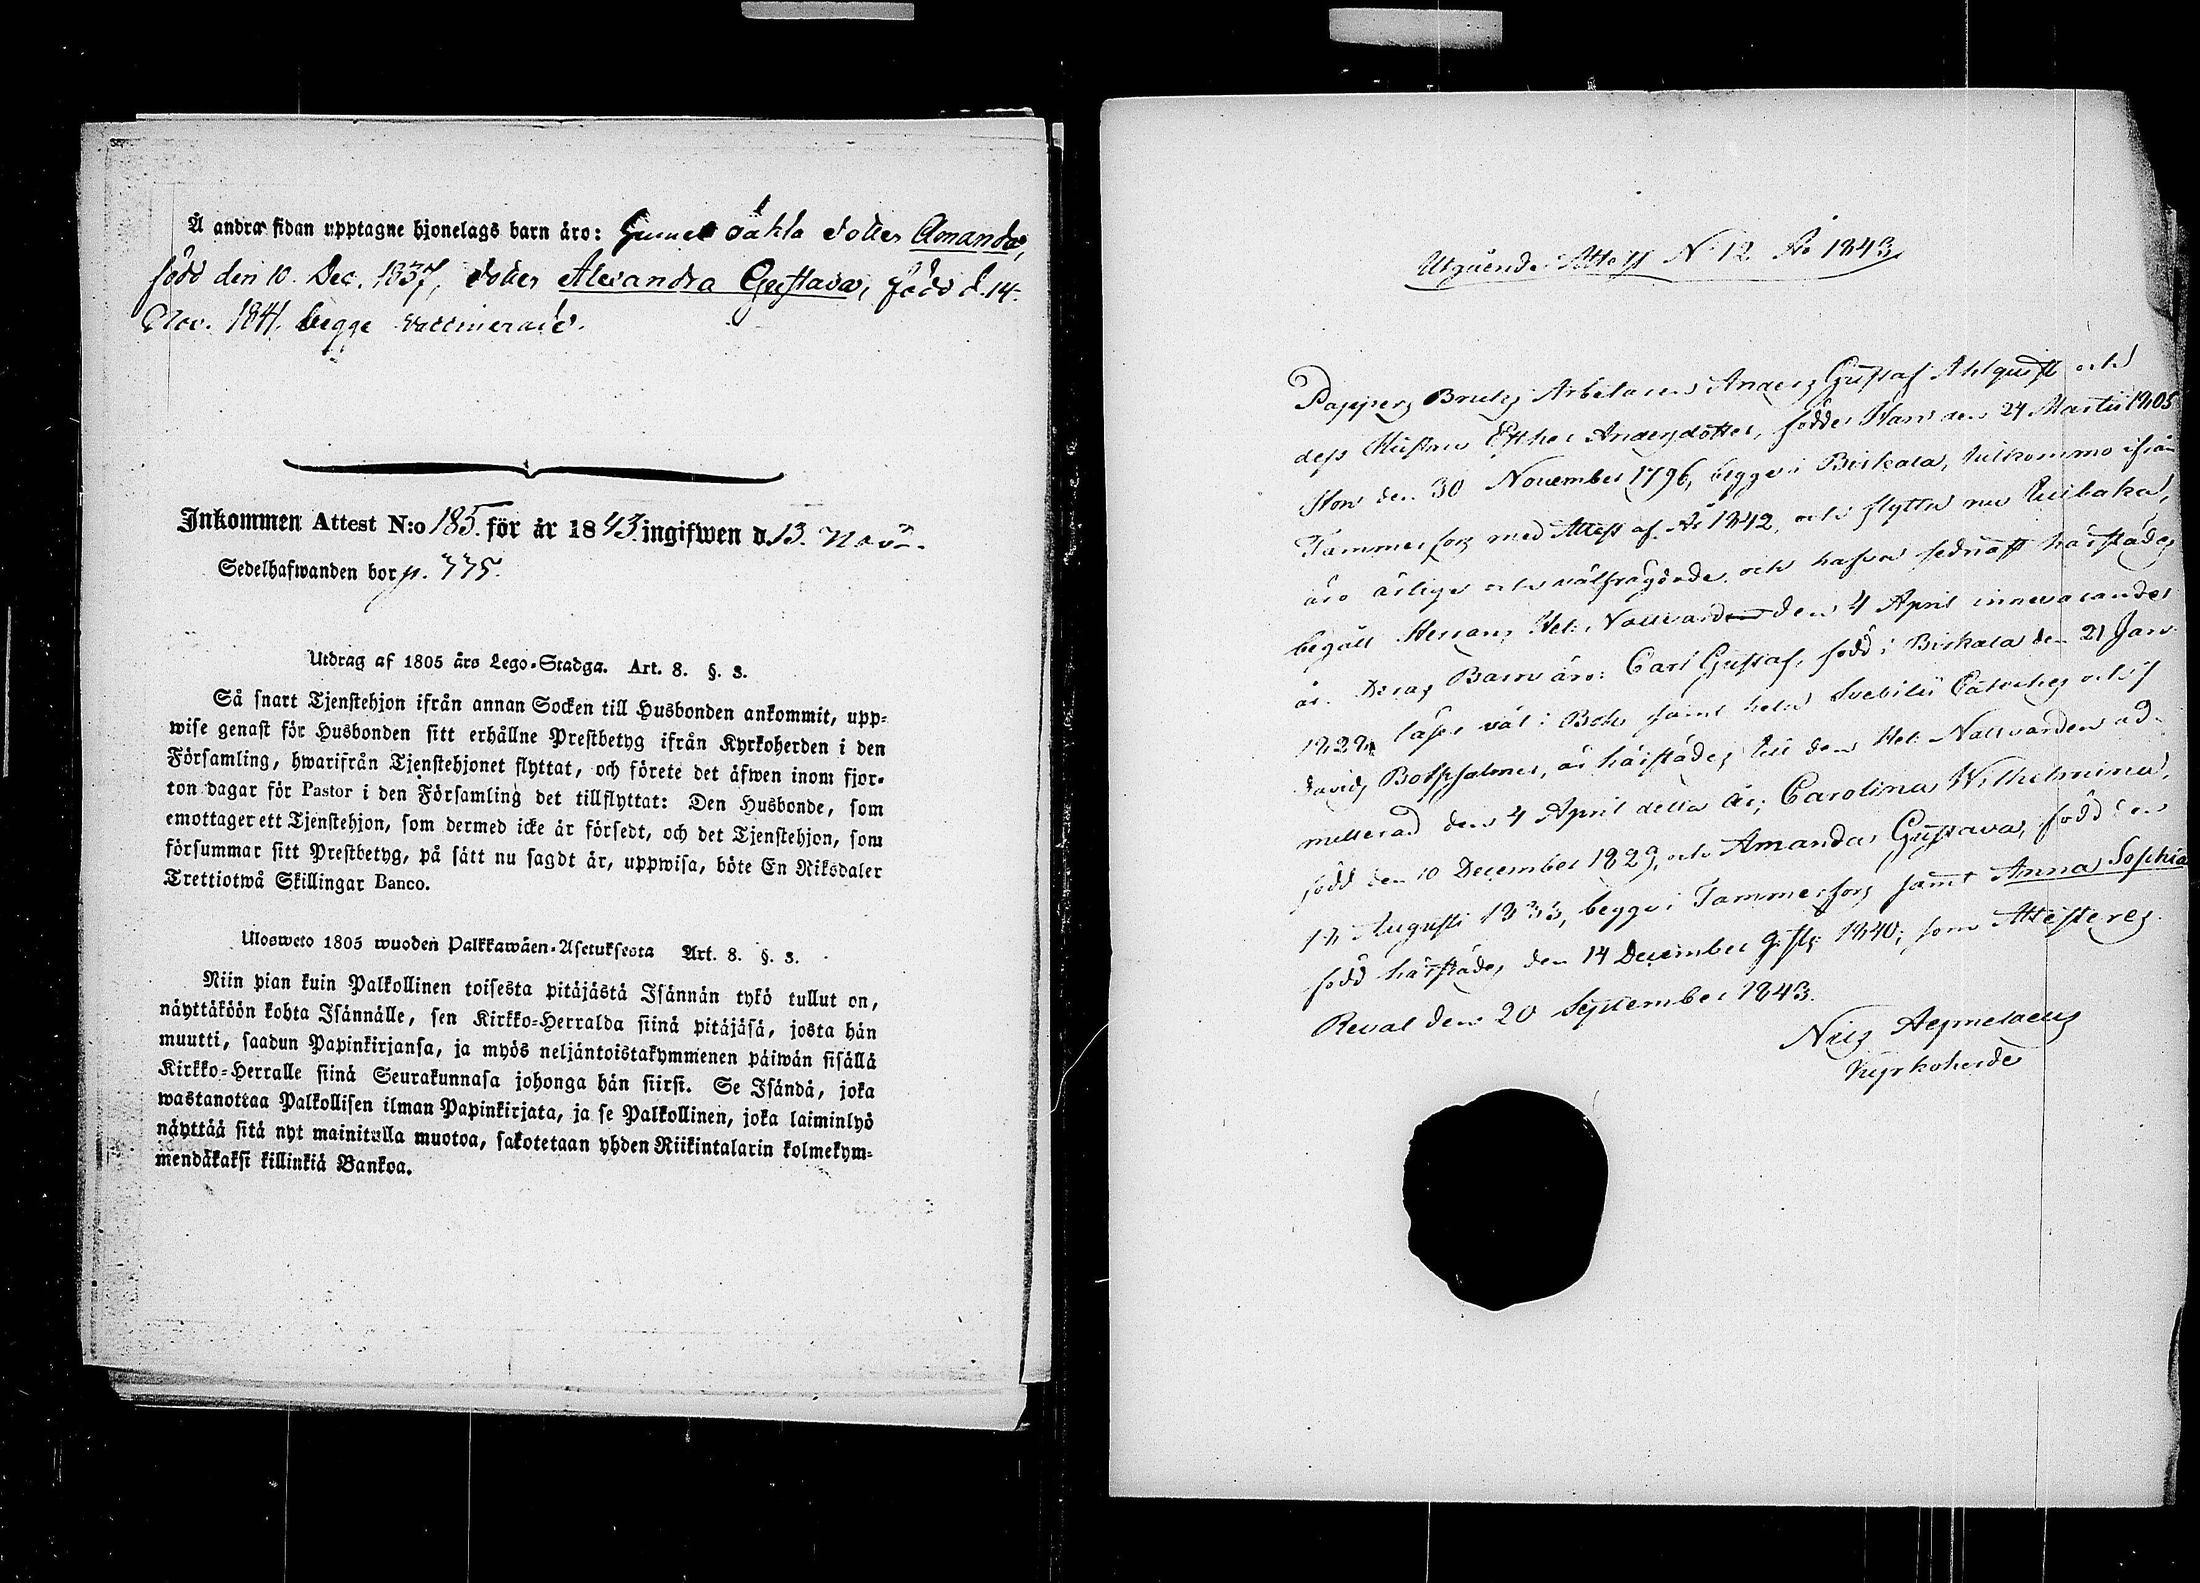 Å andra sidan upptagne hjonelags barn äro: äkta dotter Amanda,
född den 10 Dec. 1837, dotter Alexandra Gustava, född d. 14
Nov. 1841. begge vaccinerade.
Inkommen Attest N:o 185. för år 1843. ingifwen d. 13. Nov.
Sedelhafwanden bor p. 775.
Utdrag af 1805 års Lego-Stadga. Art. 8. §. 3.
Så snart Tjenstehjon ifrån annan Socken till Husbonden ankommit, upp-
wise genast för Husbonden sitt erhållne Prestbetyg ifrån Kyrkoherden i den
Församling, hwarifrån Tjenstehjonet flyttat, och förete det äfwen inom fjor-
ton dagar för Pastor i den Församling det tillflyttat: Den Husbonde, som
emottager ett Tjenstehjon, som dermed icke är försedt, och det Tjenstehjon, som
försummar sitt Prestbetyg, på sätt nu sagdt är, uppwisa, böte En Riksdaler
Trettiotwå Skillingar Banco.
Ulosweto 1805 wuoden Palkkawäen-Asetuksesta Art. 8. §. 3.
Niin pian kuin Palkollinen toisesta pitäjästä Isännän tykö tullut on,
näyttäköön kohta Isännälle, sen Kirkko-Herralda siinä pitäjäsä, josta hän
muutti, saadun Papinkirjansa, ja myös neljäntoistakymmenen päiwän sisällä
Kirkko-Herralle siinä Seurakunnasa johonga hän siirsi. Se Isändä, joka
wastanottaa Palkollisen ilman Papinkirjata, ja se Palkollinen, joka laiminlyö
näyttää sitä nyt mainitulla muotoa, sakotetaan yhden Riikintalarin kolmekym-
mendäkaksi killinkiä Bankoa.
Utgående Attest N 12 År 1843
Pappers Bruks Arbetaren Anders Gustaf Ahlquist och
dess Hustru Esther Andersdotter, födde Han den 24 Martii 1805
Hon den 30 November 1796, begge i Birkala, hitkommo ifrån
Tammerfors med Attest af År 1842 och flytta nu tillbaka,
äro ärlige och välfrägdade och hafva sednast härstädes
begått Herrans Hel. Nattvard den 4 April innevarande
år. Deras Barn äro: Carl Gustaf, född i Birkala den 21 Jan.
1829, läser väl i Bok samt hela Svebilii Cateches och 7
Davids Botpsalmer, är härstädes till den Hel. Nattvarden ad-
mitterad den 4 April detta år; Carolina Wilhelmina,
född den 10 December 1829, och Amanda Gustava, född den
Augusti 1833, begge i Tammerfors samt Anna Sophia
född härstädes den 14 December g. st. 1840; som Attesteres.
Reval den 20 September 1843.
Nils Aejmelaeus
Kyrkoherde